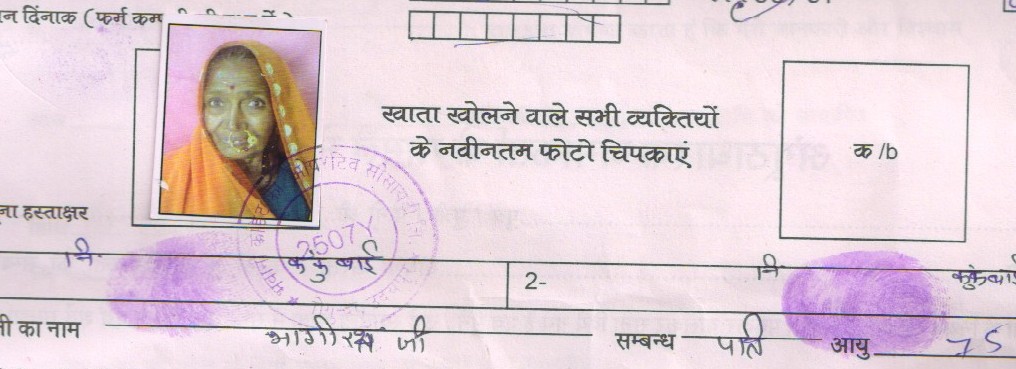 न दिनांक (फर्म कम
खाता खोलने वाले सभी व्यक्तियों
के नवीनतम फोटो चिपकाएं
क /b
ना हस्ताक्षर
2507Y
नि. कंकुबाई
2-
नि. कंकुबाई
नी का नाम भागीरथ जी सम्बन्ध पति आयु 75